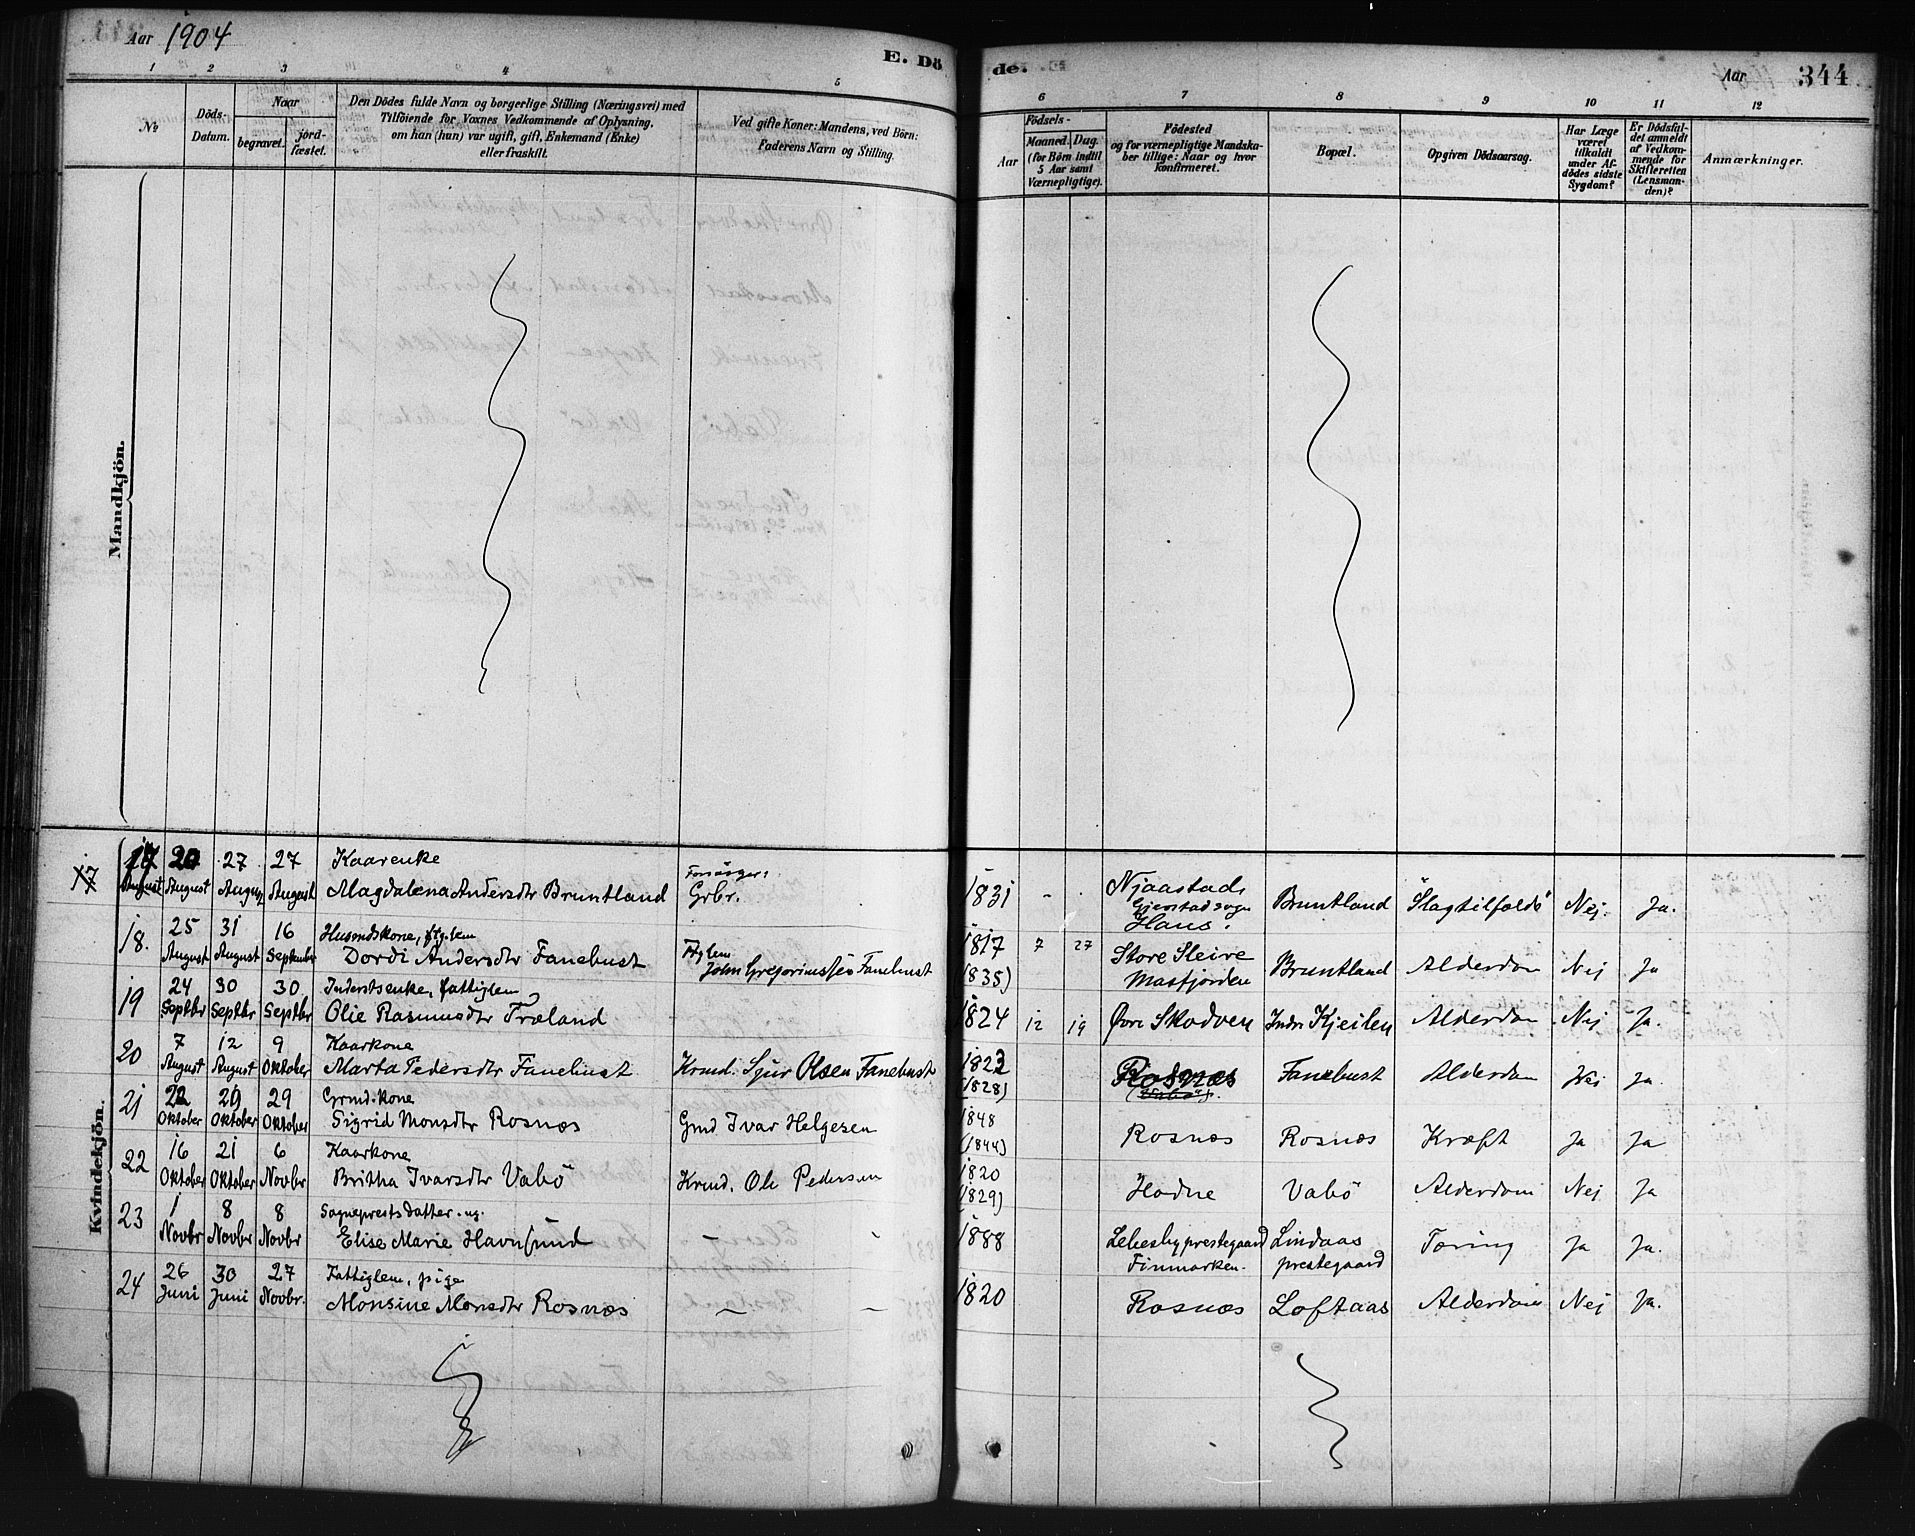 Aar 1904
E. Dö de.
Aar 344
1 2 3 4 5 6 7 8 9 10 11 12
No
Döds-Datum.
Naar
begravet.
jord-fæstet.
Den Dödes fulde Navn og borgerlige Stilling (Næringsvei) med
Tilföiende for Voxnes Vedkommende af Oplysning,
om han (hun) var ugift, gift, Enkemand (Enke)
eller fraskilt.
Ved gifte Koner: Mandens, ved Börn:
Faderens Navn og Stilling.
Födsels-
Aar
Maaned. Dag.
(for Börn indtil
5 Aar samt
Værnepligtige).
Födested
og for værnepligtige Mandska-
ber tillige: Naar og hvor
konfirmeret.
Bopæl.
Opgiven Dödsaarsag.
Har Læge
været
tilkaldt
under Af-
dödes sidste
Sygdom?
Er Dödsfal-
det anmeldt
af Vedkom-
mende for
Skifteretten
(Lensman-
den)?
Anmærkninger.
Mandkjön.
Kvindekjön.
17 20 August 27 August 27 August Kaarenke
Magdalena Andersdtr Bruntland Grbr. 1831 - Njaastad,
Gjerstad sogn
Haus. Bruntland "Slagtilfælde" Nej. Ja.
18. 25 August 31 August 16 September Husmdskone, ftglem
Dordi Andersdtr Fanebust Ftglem
John Gregoriussen Fanebust 1817
(1835) 7 27 Store Sleire
Masfjorden Bruntland Alderdom Nej Ja
19 24 Septbr 30 Septbr 30 Septbr Inderstsenke, fattiglem
Olie Rasmusdtr Træland 1824 12 19 Øvre Skodven Indre Kjeilen Alderdom Nej Ja.
20 7 August 12 August 9 Oktober Kaarkone
Marta Pedersdtr Fanebust Krmd. Sjur Olsen Fanebust 1823
(1828) Rosnæs
(Vabö). Fanebust Alderdom Nej Ja.
21 22 Oktober 29 Oktober 29 Oktober Grmd.kone
Sigrid Monsdtr Rosnæs Gmd Ivar Helgesen 1848
(1844) Rosnæs Rosnæs Kræft Ja Ja
22 16 Oktober 21 Oktober 6 Novbr Kaarkone
Britha Ivarsdtr Vabö Krmd. Ole Pedersen 1820
(1829) Hodne Vabö Alderdom Nej Ja
23 1 Novbr 8 Novbr 8 Novbr Sogneprestsdatter. ug.
Elise Marie Havnsund - 1888 Lebesby prestegaard
Finmarken. Lindaas
prestegaard Tæring Ja Ja.
24 26 Juni 30 Juni 27 Novbr. Fattiglem, pige
Monsine Monsdtr Rosnæs - 1820 Rosnæs Loftaas Alderdom Nej Ja.